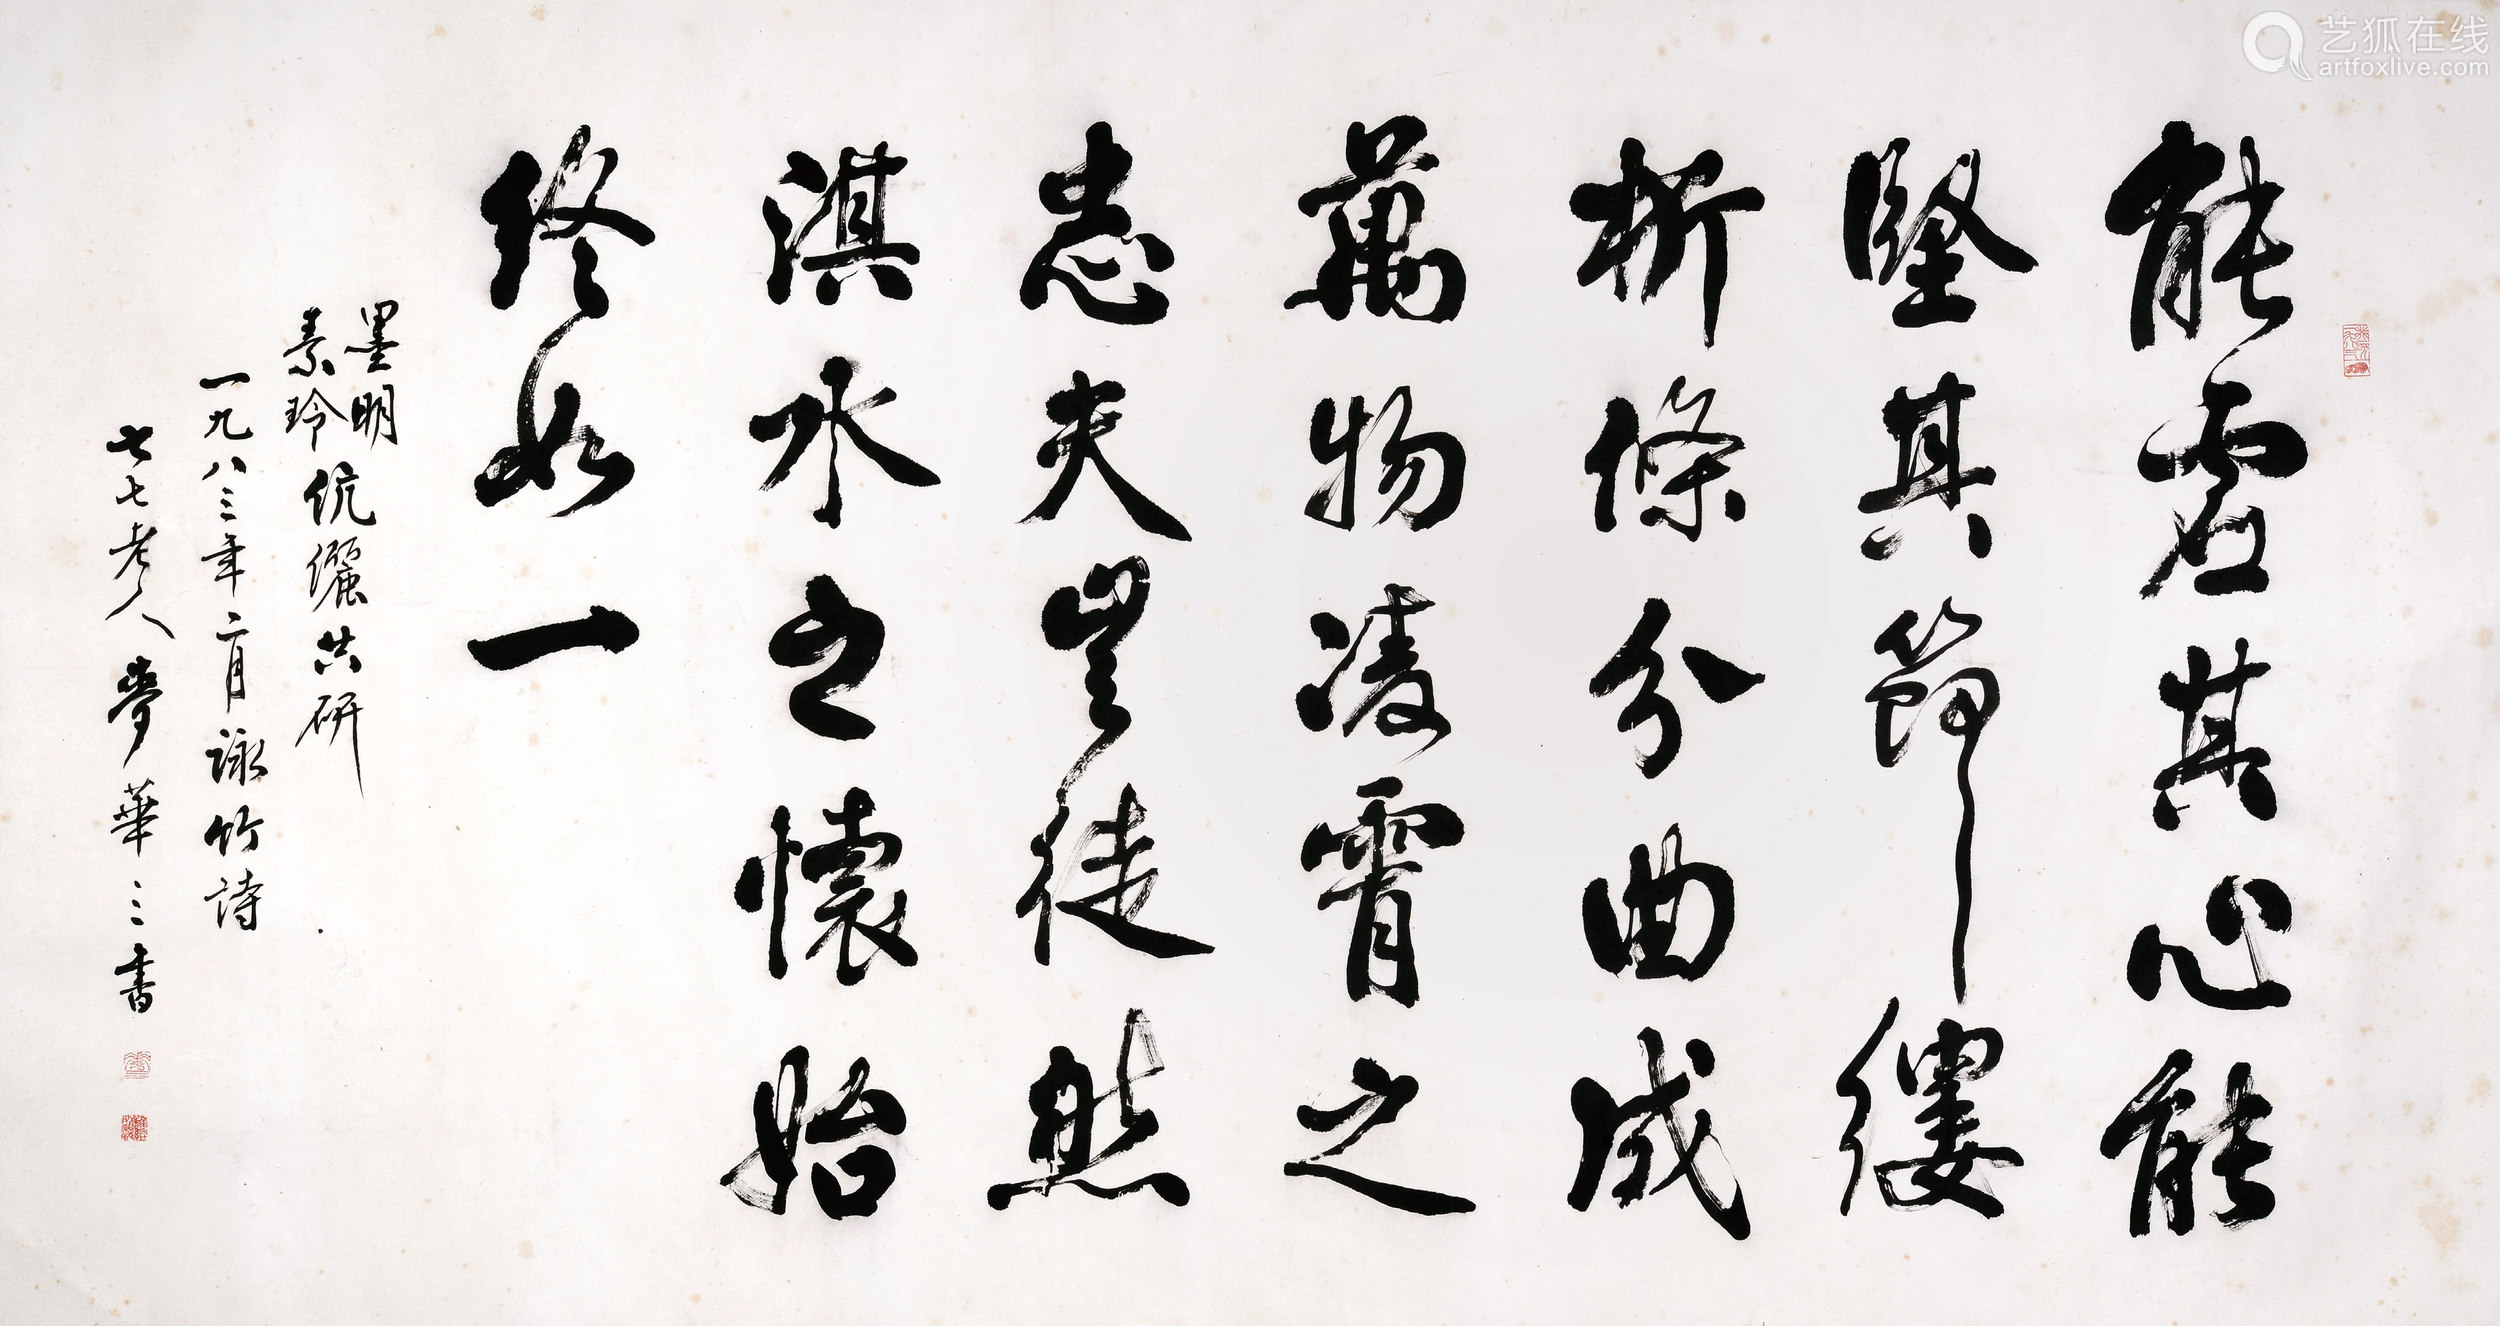 能虛其心能
堅其節縷
析條分曲成
萬物凌霄之
志夫豈徒然
淇水之懷始
終如一
墨明
素玲伉儷共研
一九八三年二月詠竹詩
七七老人夢華三三書
艺狐在线
artfoxlive.com